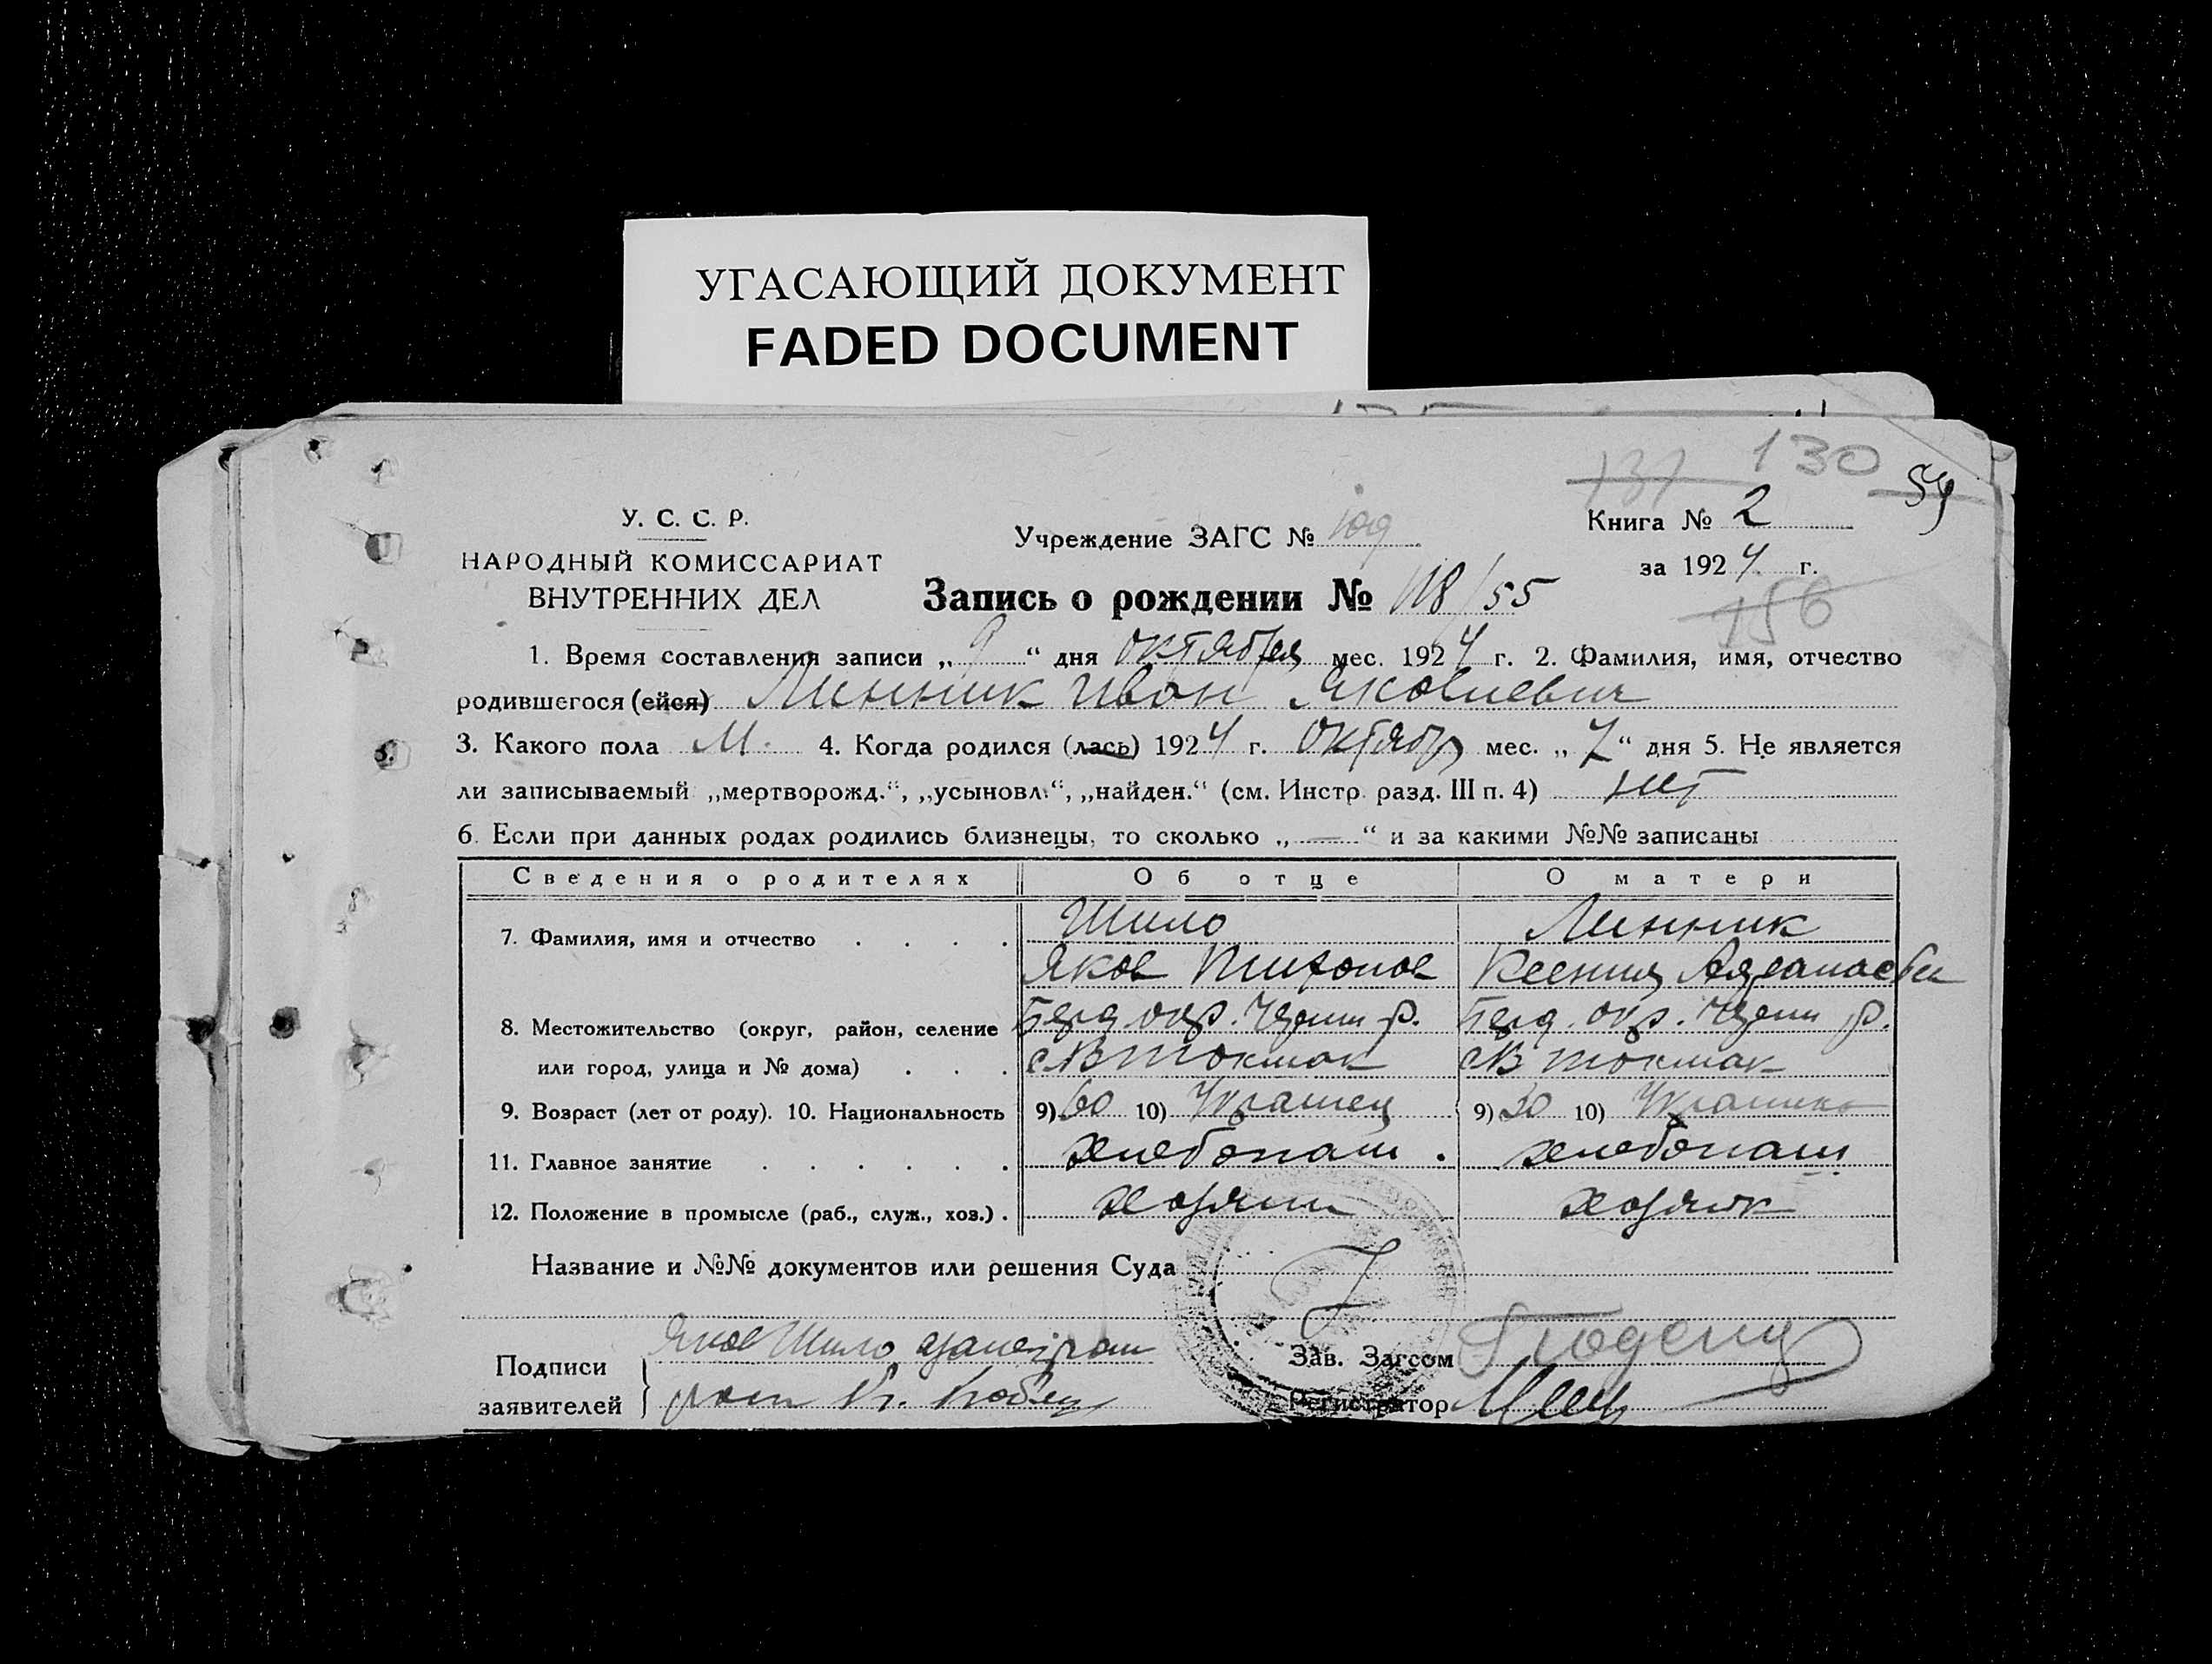 УГАСАЮЩИЙ ДОКУМЕНТ
FADED DOCUMENT
131 130 59
У. С. С. Р.
НАРОДНЫЙ КОМИССАРИАТ
ВНУТРЕННИХ ДЕЛ
Учреждение ЗАГС № 109
Книга № 2
за 1924 г.
156
Запись о рождении № 118/55
1. Время составления записи „ 9 “ дня октября мес. 1924 г. 2. Фамилия, имя, отчество
родившегося (ейся) Линник Иван Яковлевич
3. Какого пола М. 4. Когда родился (лась) 1924 г. октябр мес. „ 7 “ дня 5. Не является
ли записываемый „мертворожд.“, „усыновл.“, „найден.“ (см. Инстр. разд. III п. 4) нет
6. Если при данных родах родились близнецы, то сколько „ — “ и за какими №№ записаны
Сведения о родителях Об отце О матери
7. Фамилия, имя и отчество . . . . Шило Линник
Яков Тихонов Ксения
8. Местожительство (округ, район, селение Бердокр. р. Берд. окр. р.
или город, улица и № дома) . . . сВ Токмак сВ Токмак
9. Возраст (лет от роду). 10. Национальность 9) 60 10) Украинец 9) 30 10) Украинка
11. Главное занятие . . . . . . хлебопаш. хлебопаш.
12. Положение в промысле (раб., служ., хоз.) . хозяин хозяйк
Название и №№ документов или решения Суда
Подписи Яков Шило
заявителей
Зав. Загсом
Регистратор